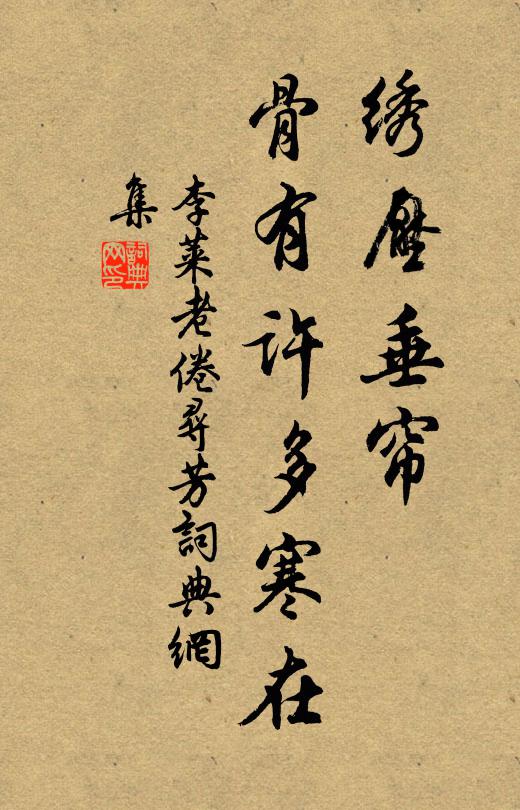 绣压垂帘
骨有许多寒在
李莱老倦寻芳詞典網
集
詞典
网印